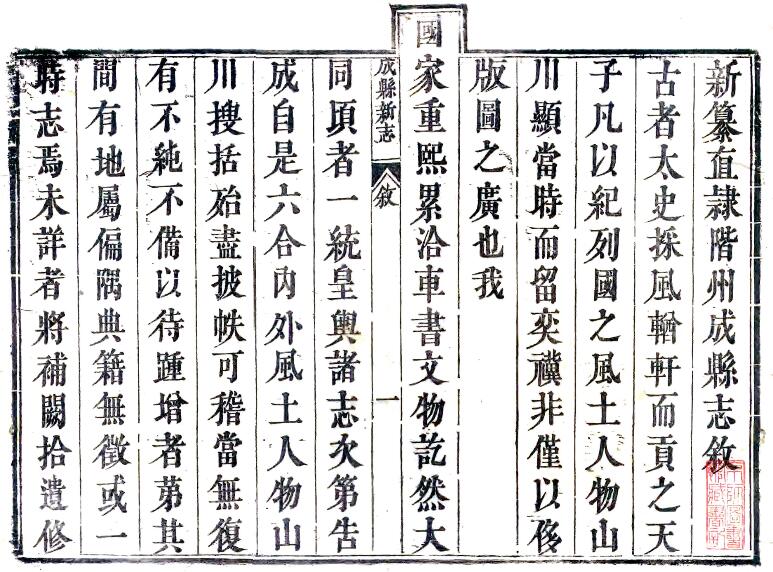 新纂直隸階州成縣志敘
古者太史採風輶軒而貢之天
子凡以紀列國之風土人物山
川顯當時而留奕禩非僅以侈
版圖之廣也我
國家重熙累洽車書文物訖然大
成縣新志 敘 一
同頃者一統皇輿諸志次第告
成自是六合內外風土人物山
川搜括殆盡披帙可稽當無復
有不純不備以待踵增者苐其
間有地屬偏隅典籍無徵或一
時志焉未詳者將補闕拾遺修